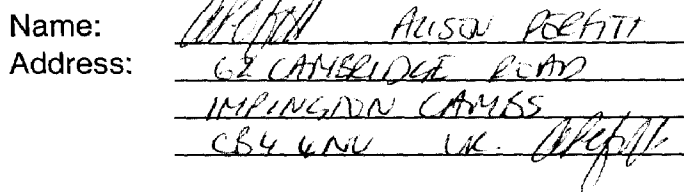 Name: ALISON PERFITT
Address: 62 CAMBRIDGE ROAD
IMPINGTON CAMBS
CB4 4NU UK.